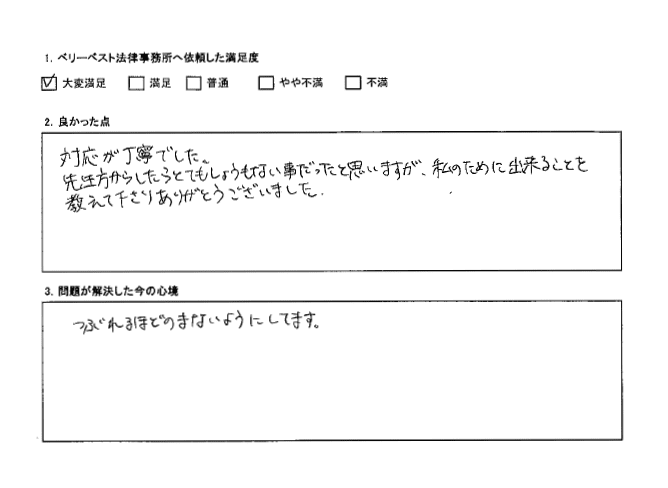 1. ベリーベスト法律事務所へ依頼した満足度
大変満足 満足 普通 やや不満 不満
2. 良かった点
対応が丁寧でした。
先生方からしたらとてもしょうもない事だったと思いますが、私のために出来ることを
教えて下さりありがとうございました.
3. 問題が解決した今の心境
つぶれるほどのまないようにしてます。